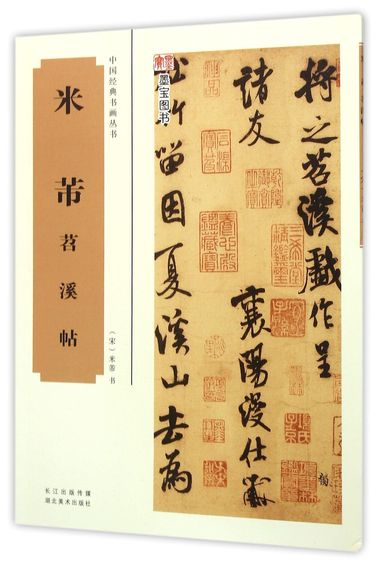 中国经典书画丛书
米芾
苕溪帖
（宋）米芾 书
长江出版传媒
湖北美术出版社
墨宝图书
將之苕溪戲作呈
諸友
襄陽漫仕黻
松竹留因夏溪山去為